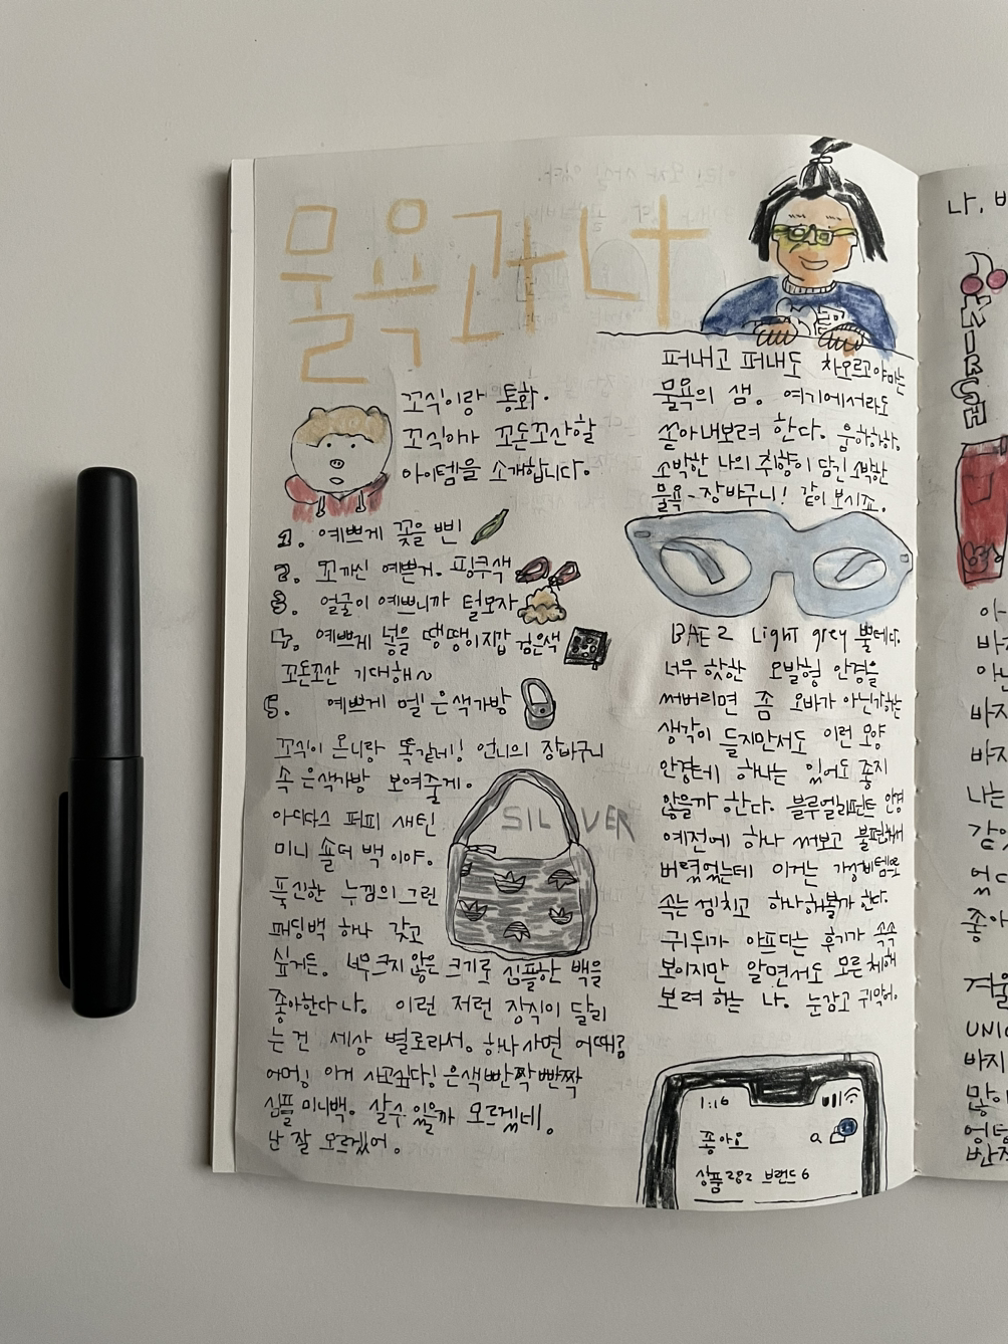 물욕과 나
꼬식이랑 통화.
꼬식이가 꼬돈꼬산할
아이템을 소개합니다.
1. 예쁘게 꽂을 삔
2. 꼬까신 예쁜거. 핑쿠색
3. 얼굴이 예쁘니까 털모자
4. 예쁘게 넣을 땡땡이지갑 검은색
꼬돈꼬산 기대해~
5. 예쁘게 멜 은색가방
꼬식이 온니랑 똑같네! 언니의 장바구니
속 은색가방 보여줄게.
아디다스 퍼피 새틴
미니 숄더 백 이야.
푹신한 누낌의 그런
패딩백 하나 갖고
싶거든. 너무크지 않은 크기로 심플한 백을
좋아한다 나. 이런 저런 장식이 달리
는 건 세상 별로라서. 하나 사면 어때?
어머! 이거 사고싶다! 은색빤짝빤짝
심플 미니백. 살 수 있을까 모르겠네.
난 잘 모르겠어.
SILVER
퍼내고 퍼내도 차오르고야마는
물욕의 샘. 여기에서라도
쏟아내보려 한다. 움하하하.
소박한 나의 취향이 담긴 소박한
물욕-장바구니! 같이 보시죠.
BAE2 Light grey 뿔테다.
너무 핫한 오발형 안경을
써버리면 좀 오바가 아닌가하는
생각이 들지만서도 이런 모양
안경테 하나는 있어도 좋지
않을까 한다. 블루엘리펀트 안경
예전에 하나 써보고 불편해서
버렸었는데 이거는 가성비템으로
속는 셈치고 하나 해볼까 한다.
귀 뒤가 아프다는 후기가 속속
보이지만 알면서도 모른 체해
보려 하는 나. 눈감고 귀막어.
1:16
좋아요
상품 282 브랜드 6
나,
KIRSH
아
바지
아니
바지
바지
나는
같
좋아
겨울
UNI
바지
많이
엉
반